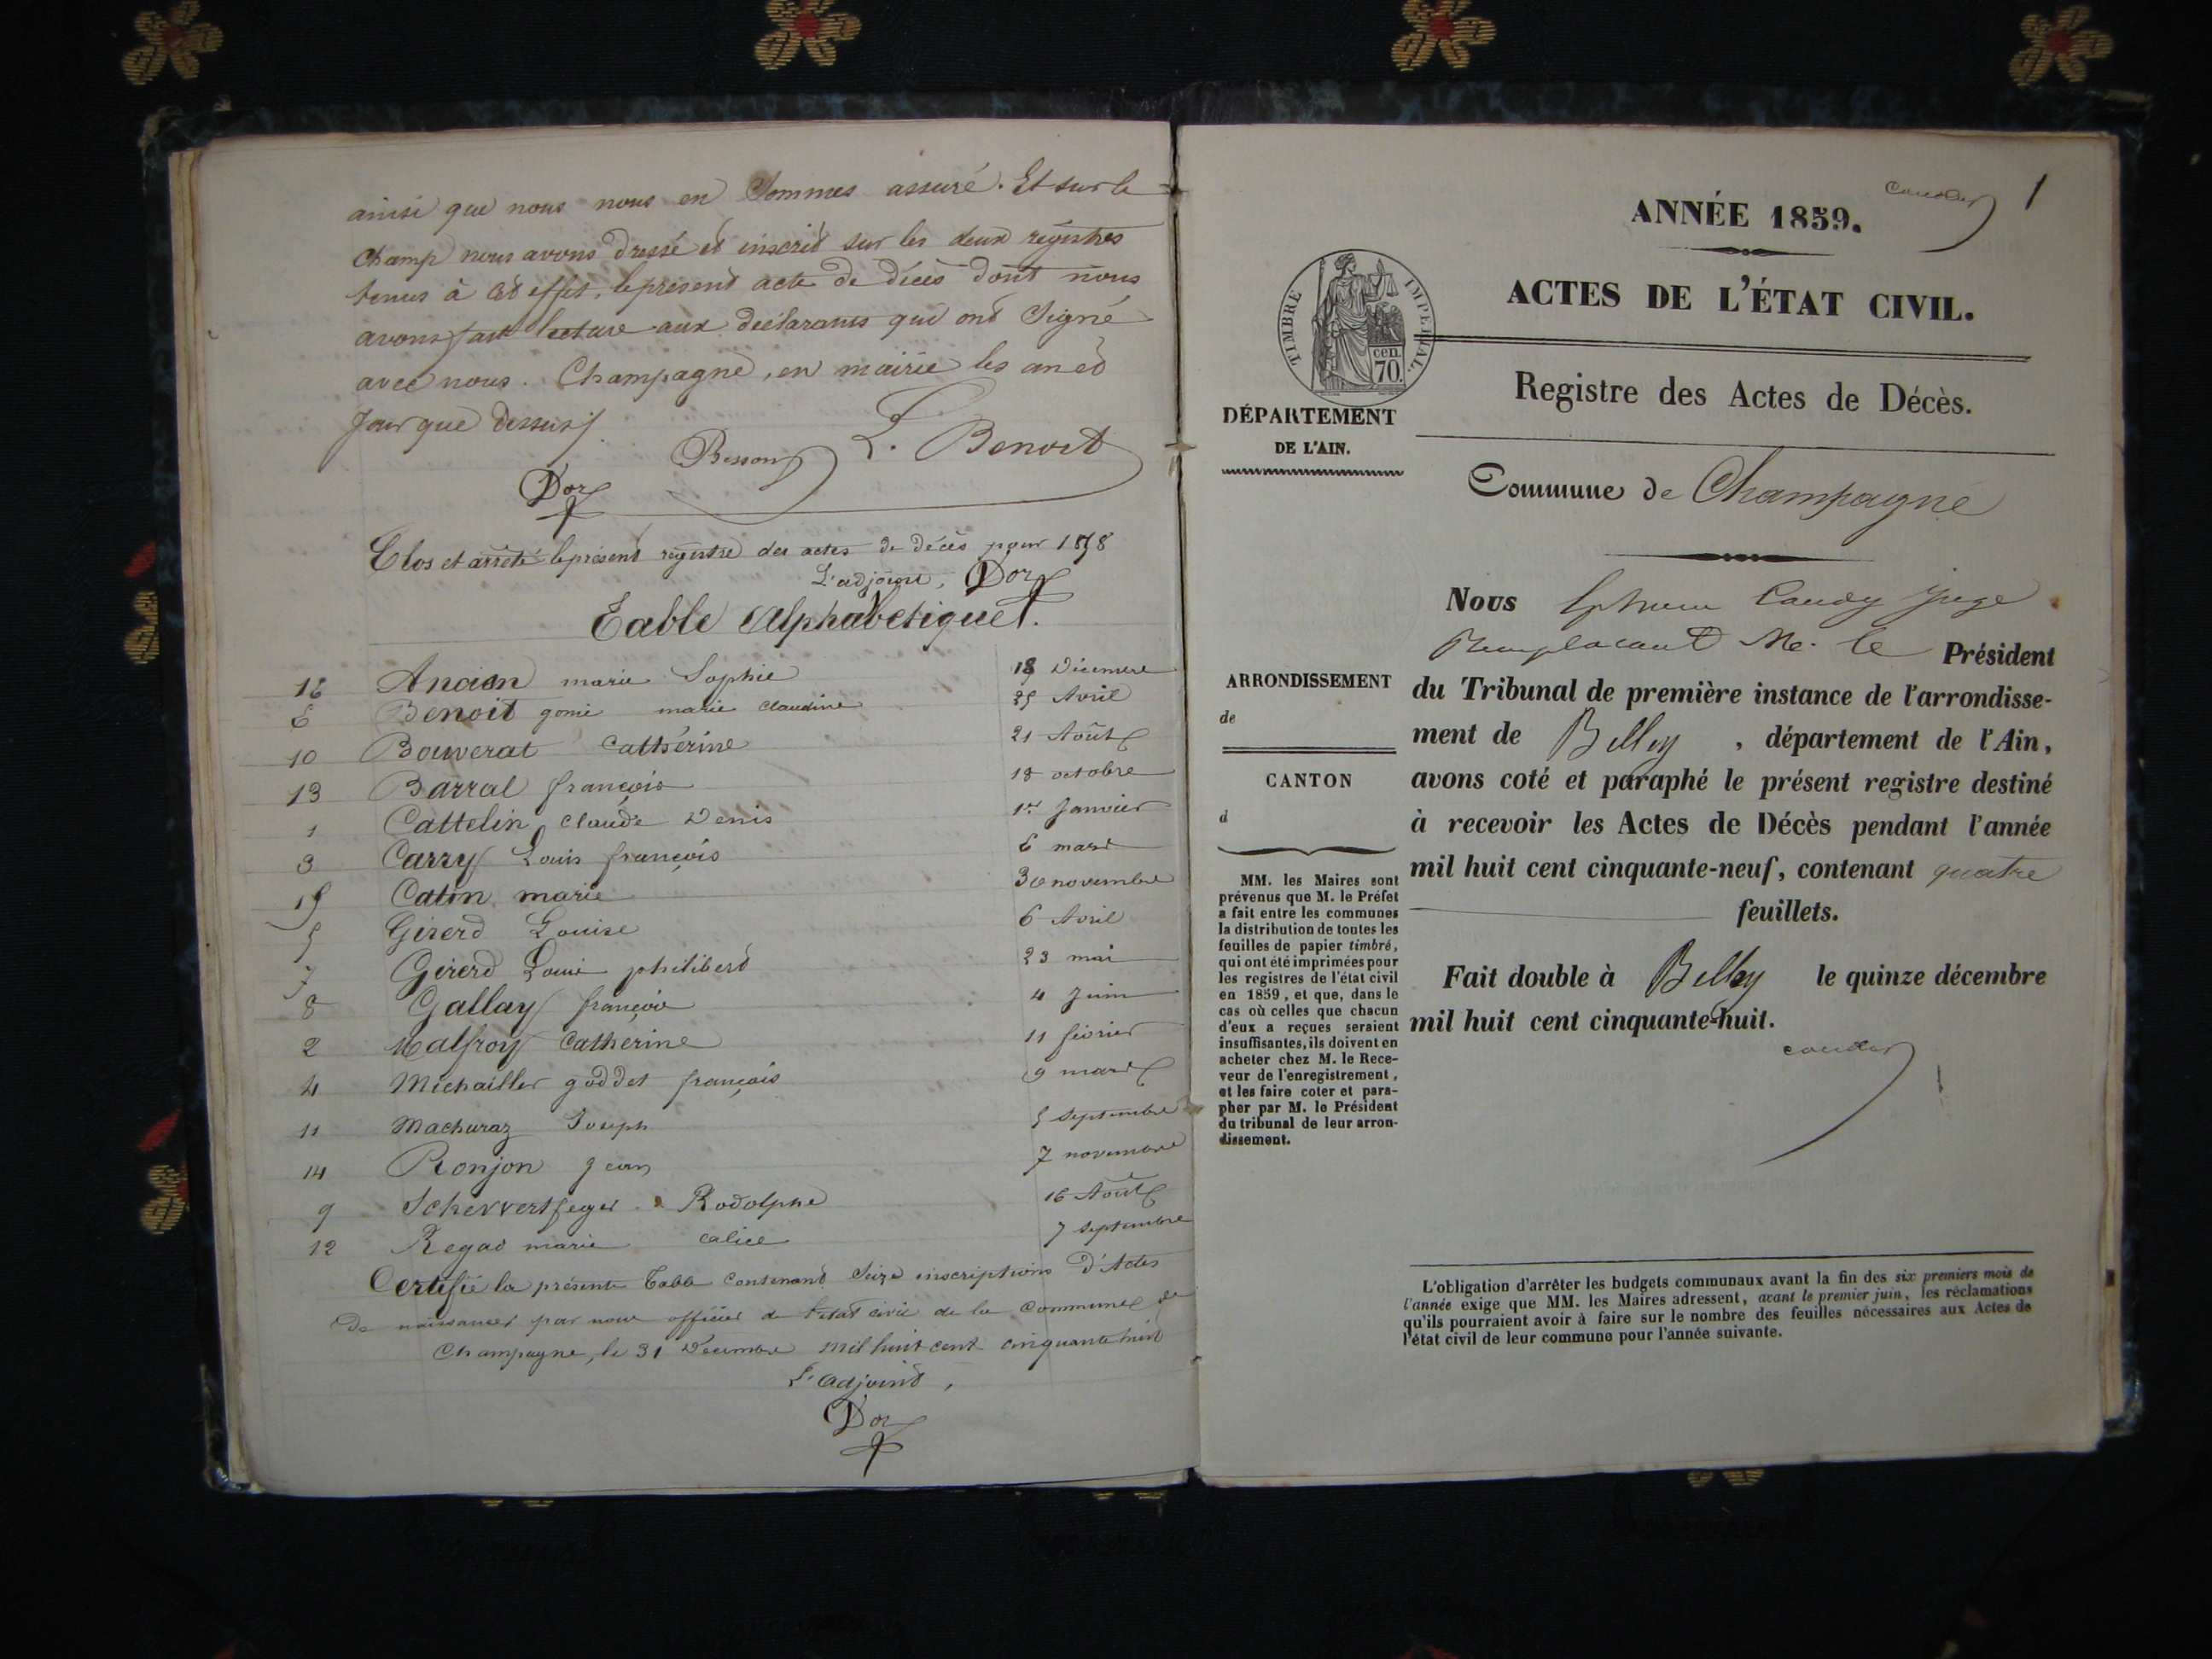 ainsi que nous nous en Sommes assuré. Et sur le
champ nous avons Dressé et inscrit sur les deux registres
tenus à cet effet, le présent acte de décès dont nous
avons fait lecture aux déclarants qui ont Signé
avec nous. Champagne, en mairie les an et
Jour que Dessus
Besson L. Benoit
Dor
Clos et arrêté le présent registre des actes de décès pour 1858
L'adjoint, Dor
Table Alphabetique.
16 Ancian marie Sophie 18 Décembre
6 Benoit gonie marie claudine 25 Avril
10 Bouverat Cathérine 21 Août
13 Barral françois 18 octobre
1 Cattelin claude Denis 1er Janvier
3 Carry Louis françois 6 mars
15 Catin marie 30 novembre
5 Girerd Louise 6 Avril
7 Girerd Louis philibert 23 mai
8 Gallay françois 4 Juin
2 Malfroy Catherine 11 février
4 Michaillet goddet françois 9 mars
11 Machuraz Joseph 5 Septembre
14 Ronjon Jean 7 novembre
9 Schervertfeger Rodolphe 16 Août
12 Regad marie calice 7 septembre
Certifié la présente Table Contenant Seize inscriptions D'Actes
De naissances par nous officier de l'état civil de la Commune de
Champagne, le 31 Décembre mil huit cent cinquante huit
L'adjoint,
Dor
1
ANNÉE 1859.
ACTES DE L'ÉTAT CIVIL.
TIMBRE IMPERIAL.
cen. 70
Registre des Actes de Décès.
DÉPARTEMENT
DE L'AIN.
Commune de Champagne
Nous Caudy Juge
Remplacant M. le Président
ARRONDISSEMENT
de
CANTON
d
du Tribunal de première instance de l'arrondisse-
ment de Belley, département de l'Ain,
avons coté et paraphé le présent registre destiné
à recevoir les Actes de Décès pendant l'année
mil huit cent cinquante-neuf, contenant quatre
feuillets.
Fait double à Belley le quinze décembre
mil huit cent cinquante-huit.
MM. les Maires sont
prévenus que M. le Préfet
a fait entre les communes
la distribution de toutes les
feuilles de papier timbré,
qui ont été imprimées pour
les registres de l'état civil
en 1859, et que, dans le
cas où celles que chacun
d'eux a reçues seraient
insuffisantes, ils doivent en
acheter chez M. le Rece-
veur de l'enregistrement,
et les faire coter et para-
pher par M. le Président
du tribunal de leur arron-
dissement.
L'obligation d'arrêter les budgets communaux avant la fin des six premiers mois de
l'année exige que MM. les Maires adressent, avant le premier juin, les réclamations
qu'ils pourraient avoir à faire sur le nombre des feuilles nécessaires aux Actes de
l'état civil de leur commune pour l'année suivante.